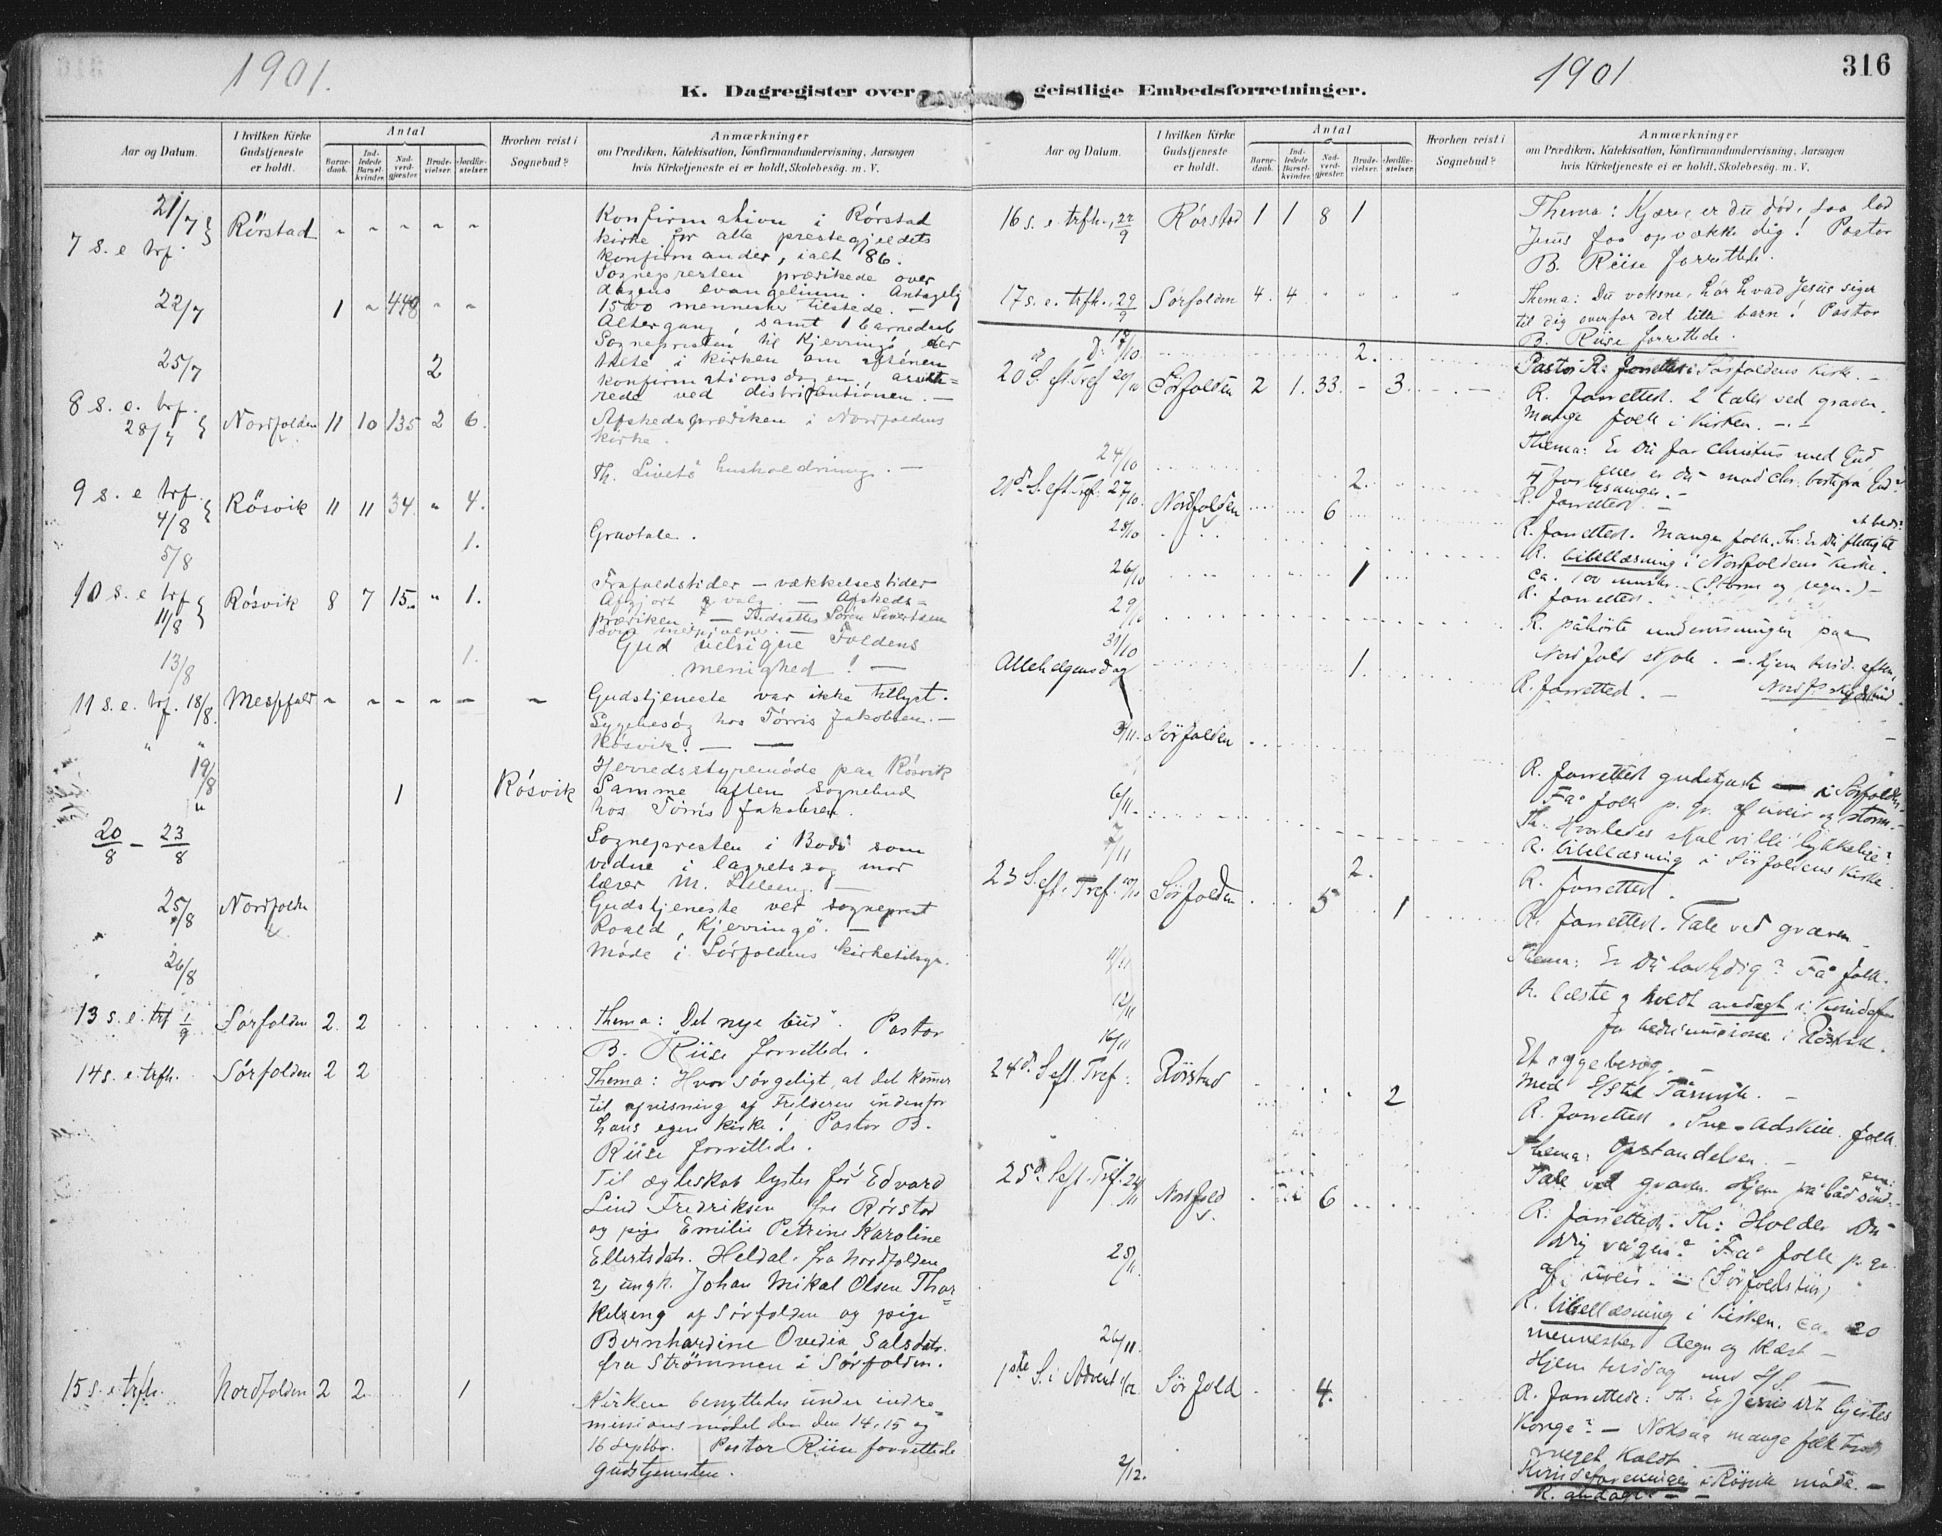 1901.
K. Dagregister over
Aar og Datum.
I hvilken Kirke Gudstjeneste er holdt.
Antal
Barnedaab.
Indledede Barselkvinder.
Nadverdgjæster.
Brudevielser.
Jordfæstelser.
Hvorhen reist i Sognebud?
Anmærkninger
om Prædiken, Katekisation, Konfirmandundervisning, Aarsagen
hvis Kirketjeneste ei er holdt, Skolebesøg. m. V.
21/7 Rörstad " " " " " Konfirmation i Rörstad
7 s. e. trf. kirke for alle prestegjeldets
konfirmander, ialt 86.
Sognepresten prædikede over
dagens evangelium. Antagelig
22/7 1 " 448 " " 1500 mennesker tilstede. —
Altergang, samt 1 barnedaab
Sognepresten til Kjerringö, der
25/7 2 talte i kirken om aftenen
konfirmationsdagen, assiste-
rede ved distributionen. —
8 s. e. trf.
28/7 Nordfolden 11 10 135 2 6. Afskedsprædiken i Nordfoldens
kirke.
Th. Livets husholdning. —
9 s. e trf.
4/8 Rösvik 11 11 34 " 4.
5/8 1. Gravtale.
10 s. e trf
11/8 Rösvik 8 7 15 " 1. Frafaldstider — vækkelsestider
— Afskeds-
prædiken. —
Gud velsigne Foldens
13/8 1. menighed! —
11 s. e. trf. 18/8. " " " " — " Gudstjeneste var ikke tillyst.
Sygebesög hos Törris Jakobsen. —
" " Rösvik. — —
19/8 Herredsstyremöde paa Rösvik
" 1 Rösvik Samme aften sognebud
hos Törris Jakobsen.
20/8 — 23/8 Sognepresten i Bodö som
vidne i lagretssag mod
lærer M. —
25/8 Nordfolden Gudstjeneste ved sogneprest
Roald, Kjerringö. —
26/8 Möde i Sörfoldens kirketilsyn.
13 s. e. trf 1/9 Sörfolden 2 2 Thema: "Det nye bud". Pastor
B. Riise forrettede.
14 s. e. trfh. Sörfolden 2 2 Thema: Hvor sörgeligt, at det kommer
til afvisning af Frelseren indenfor
hans egen kirke! Pastor B.
Riise forrettede.
Til ægteskab lystes for Edvard
Lind Fredriksen fra Rörstad
og pige Emilie Petrine Karoline
Ellertsdatr. Heldal fra Nordfolden
2) ungk. Johan Mikal Olsen Thor-
kelseng af Sörfolden og pige
Bernhardine Ovedia Salsdatr.
fra Strömmen i Sörfolden.
15 s. e. trfh. Nordfolden 2 2 1 Kirken benyttedes under indre-
missionsmödet den 14, 15 og
16 Septbr. Pastor Riise forrettede
gudstjenesten.
1901
316
geistlige Embedsforretninger.
Aar og Datum.
I hvilken Kirke Gudstjeneste er holdt.
Antal
Barnedaab.
Indledede Barselkvinder.
Nadverdgjæster.
Brudevielser.
Jordfæstelser.
Hvorhen reist i Sognebud?
Anmærkninger
om Prædiken, Katekisation, Konfirmandundervisning, Aarsagen
hvis Kirketjeneste ei er holdt, Skolebesøg. m. V.
16 s. e. trfh., 22/9 Rörstad 1 1 8 1 Thema: Kjære, er du död, saa lad
Jesus faa opvække dig! Pastor
B. Riise forrettede.
17 s. e. trfh., 29/9 Sörfolden 4. 4 Thema: Du voksne, hör hvad Jesus siger
til dig overfor det lille barn! Pastor
B. Riise forrettede.
2. Pastor R. forrettede i Sörfoldens kirke. —
20 S. eft. Tref 20/10 Sörfolden 2 1. 33. - 3. — R. forretted. 2 taler ved graven.
Mange folk i kirken. —
Thema: Er Du for Christus med Gud
24/10 2.
21de S. eft. Tref. 27/10. Nordfolden 6 R. forretted. —
R. forretted. Mange folk.
R. bibellæsning i Nordfoldens kirke.
ca. 100 mnsker. (Storm og regn.) —
1 R. forretted. —
29/10 R. påhörte undervisningen paa
31/10 Nordfold skole. —
Allehelgensdag 1. R. forrettede. —
3/11. Sörfolden R. forrettede gudstjeneste i Sörfolden
Få folk p. gr. af uveir og storm. —
Th: Hvorledes skal vi bli' lykkelige?
6/11. R. bibellæsning i Sörfoldens kirke.
7/11 2. R. forretted.
23 S. eft. Tref. 10/11 Sörfolden 5 1 R. forretted. Tale ved graven —
Thema: Er Du lovlydig? Få folk.
11/11 R. læste & holdt andagt i Kvindefor
12/11 for hedningemissionen i Rösvik.
16/11 Et sygebesøg. —
24de S. eft. Tref: Rörstad 2 R. forretted.
Thema: Opstandelsen. —
Tale ved graven.
25de S. eft. Tref. 24/11 Nordfold 6 R. forretted. Th: Holder Du
Dig vågen? Få folk p. gr.
af uveir. —
25/11 R. bibellæsning i kirken. ca. 20
mennesker. Regn og blæst —
26/11.
1ste S. i Advent 1/12 Sörfold 4. R. forrettede: Th: Er Jesus dit hjertes
Konge? — Noksaa mange folk trods
meget koldt.
2/12. Kvindeforeningen i Rösvik möde. —
R. andagt. —